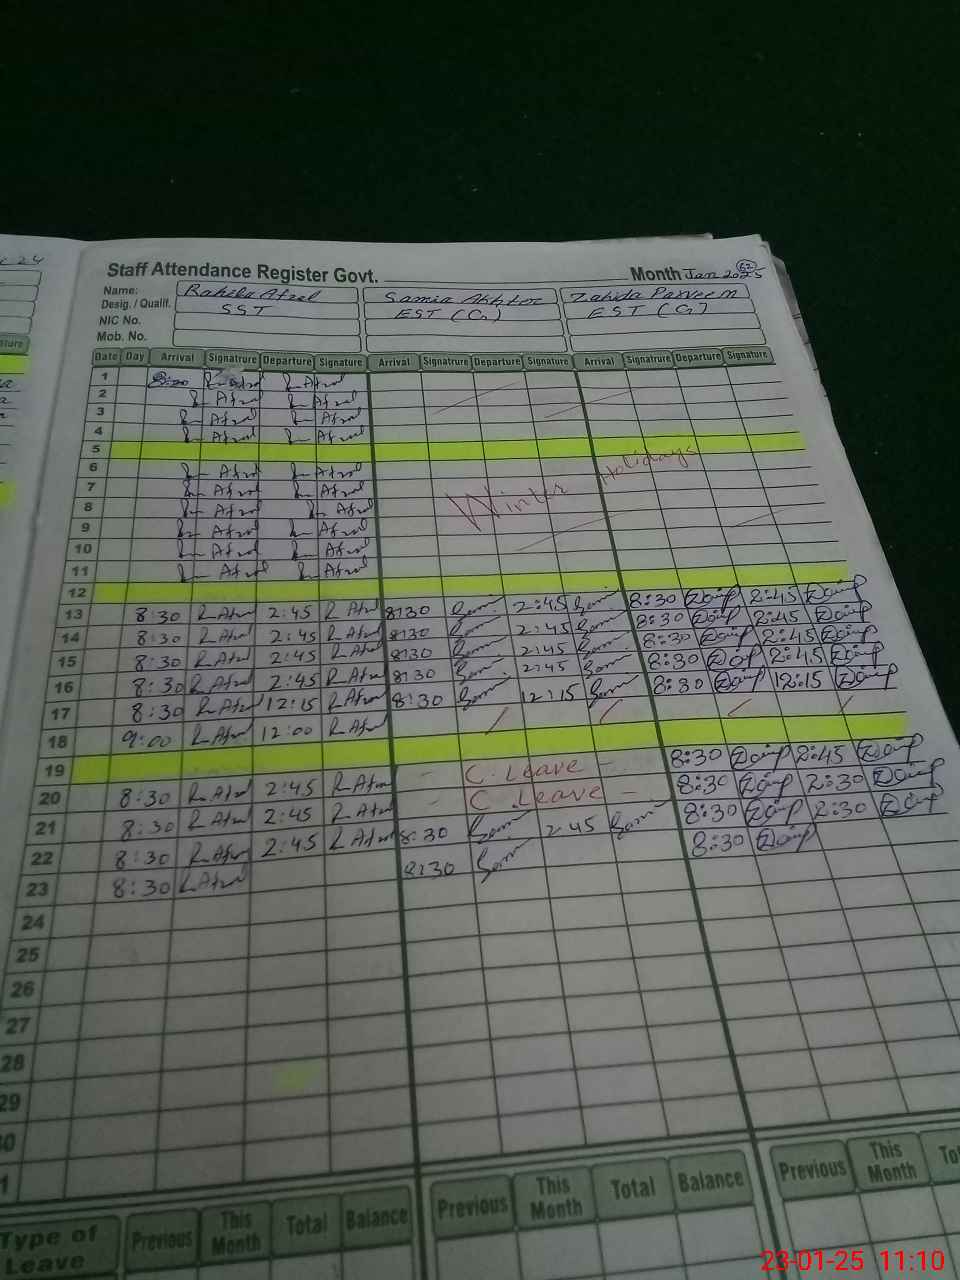 Staff Attendance Register Govt. Month Jan 2025
Name: Rahila Afzal Samia Akhtar Zahida Parveen
Desig. / Qualif. SST EST (G) EST (G)
NIC No.
Mob. No.
Date Day Arrival Signatrure Departure Signature Arrival Signatrure Departure Signature Arrival Signatrure Departure Signature
1 8:30 R Afzal R Afzal
2 R Afzal R Afzal
3 R Afzal R Afzal
4 R Afzal R Afzal
5
6 R Afzal R Afzal Holidays
7 R Afzal R Afzal Winter
8 R Afzal R Afzal
9 R Afzal R Afzal
10 R Afzal R Afzal
11 R Afzal R Afzal
12
13 8:30 R Afzal 2:45 R Afzal 8:30 2:45 8:30 2:45
14 8:30 R Afzal 2:45 R Afzal 8:30 2:45 8:30 2:45
15 8:30 R Afzal 2:45 R Afzal 8:30 2:45 8:30 2:45
16 8:30 R Afzal 2:45 R Afzal 8:30 2:45 8:30 2:45
17 8:30 R Afzal 12:15 R Afzal 8:30 12:15 8:30 12:15
18 9:00 R Afzal 12:00 R Afzal
19
20 8:30 R Afzal 2:45 R Afzal C. Leave 8:30 2:45
21 8:30 R Afzal 2:45 R Afzal C. Leave 8:30 2:30
22 8:30 R Afzal 2:45 R Afzal 8:30 2:45 8:30 2:30
23 8:30 R Afzal 8:30 8:30
24
25
26
27
28
29
Type of Leave Previous This Month Total Balance Previous This Month Total Balance Previous This Month
23-01-25 11:10